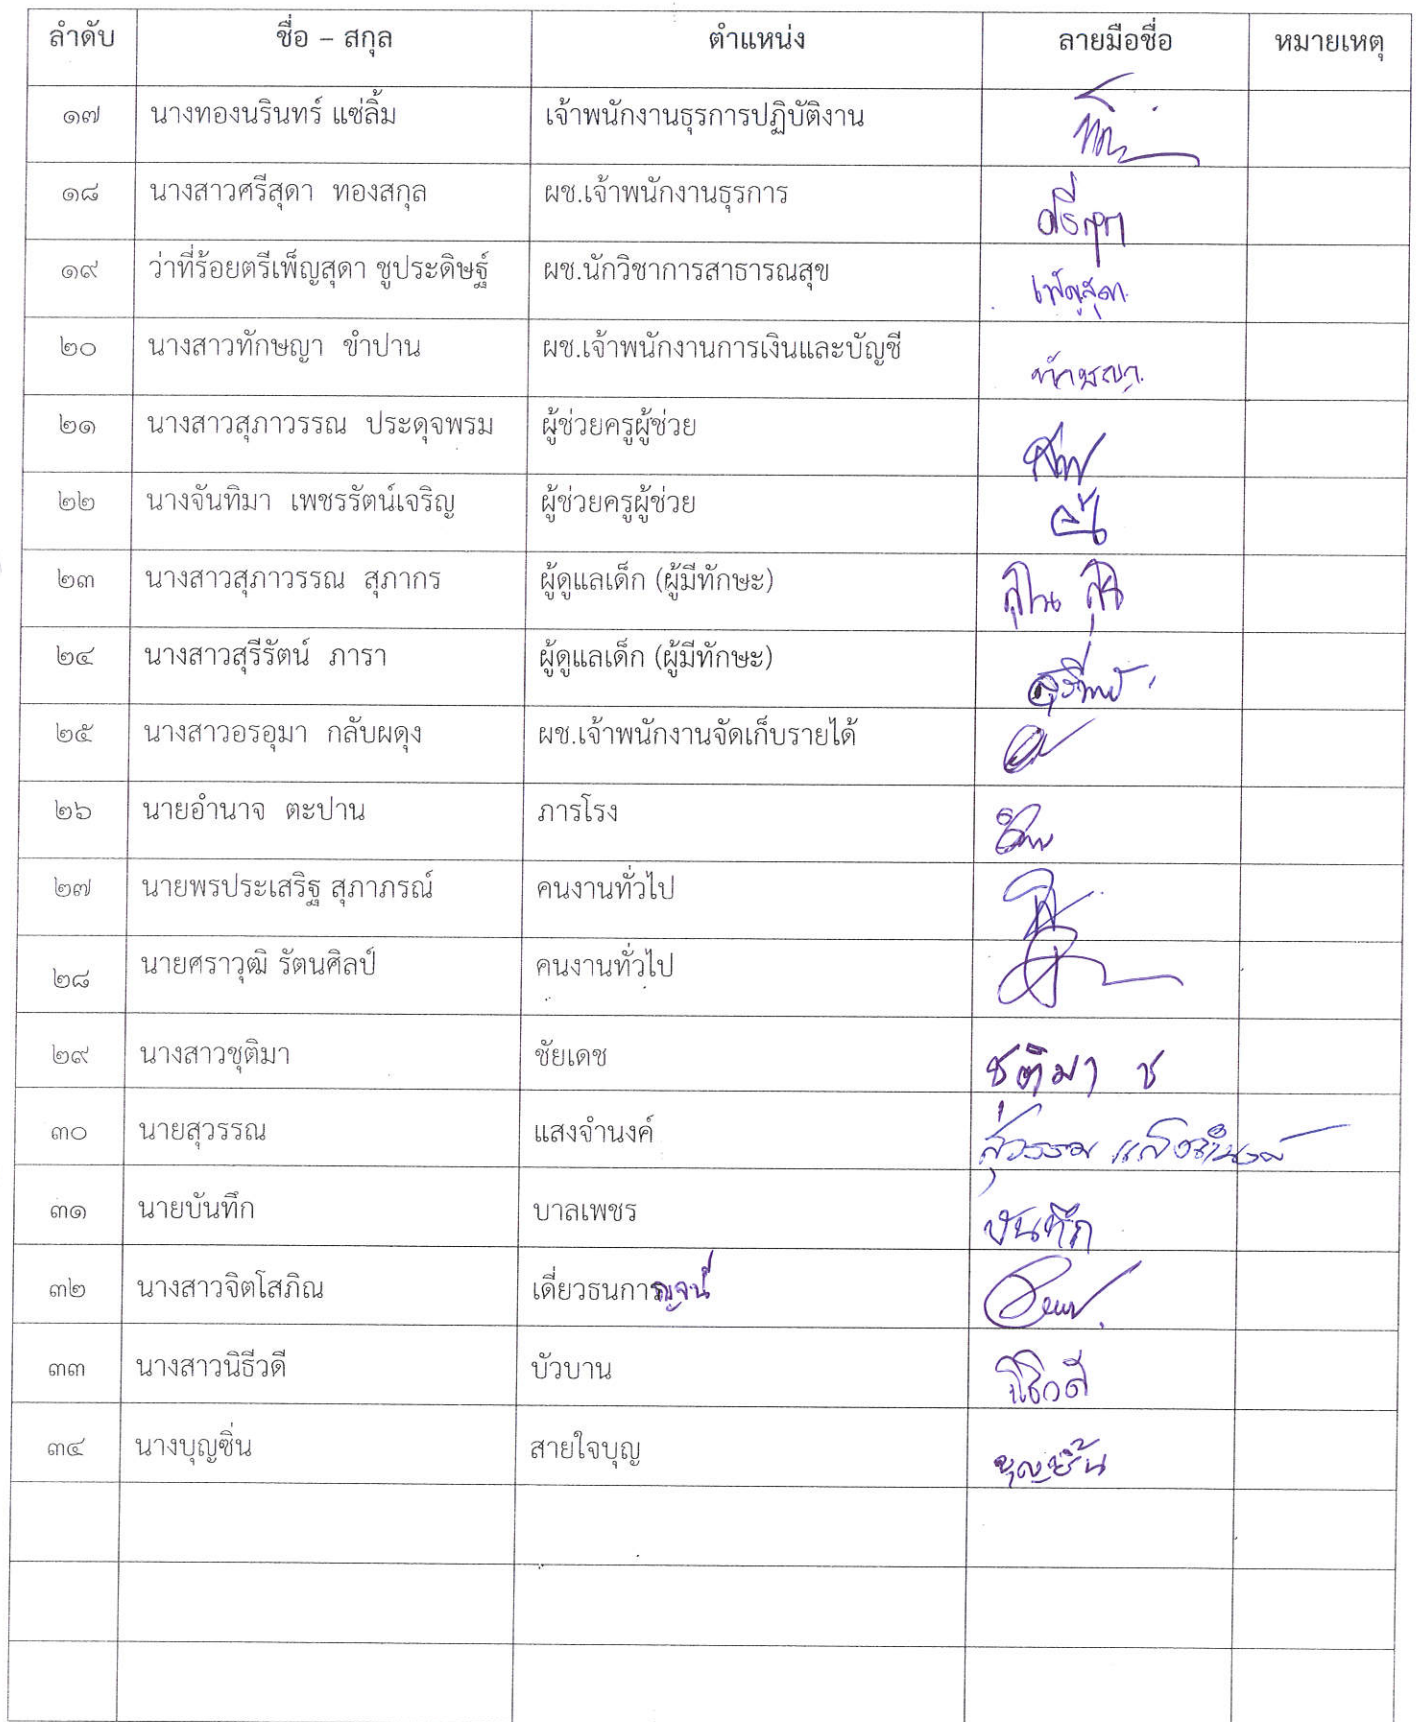 ลำดับ ชื่อ – สกุล ตำแหน่ง ลายมือชื่อ หมายเหตุ
๑๗ นางทองนรินทร์ แซ่ลิ้ม เจ้าพนักงานธุรการปฏิบัติงาน
๑๘ นางสาวศรีสุดา ทองสกุล ผช.เจ้าพนักงานธุรการ
๑๙ ว่าที่ร้อยตรีเพ็ญสุดา ชูประดิษฐ์ ผช.นักวิชาการสาธารณสุข เพ็ญสุดา
๒๐ นางสาวทักษญา ขำปาน ผช.เจ้าพนักงานการเงินและบัญชี ทักษญา
๒๑ นางสาวสุภาวรรณ ประดุจพรม ผู้ช่วยครูผู้ช่วย
๒๒ นางจันทิมา เพชรรัตน์เจริญ ผู้ช่วยครูผู้ช่วย
๒๓ นางสาวสุภาวรรณ สุภากร ผู้ดูแลเด็ก (ผู้มีทักษะ)
๒๔ นางสาวสุรีรัตน์ ภารา ผู้ดูแลเด็ก (ผู้มีทักษะ)
๒๕ นางสาวอรอุมา กลับผดุง ผช.เจ้าพนักงานจัดเก็บรายได้
๒๖ นายอำนาจ ตะปาน ภารโรง
๒๗ นายพรประเสริฐ สุภาภรณ์ คนงานทั่วไป
๒๘ นายศราวุฒิ รัตนศิลป์ คนงานทั่วไป
๒๙ นางสาวชุติมา ชัยเดช ชุติมา ช
๓๐ นายสุวรรณ แสงจำนงค์ สุวรรณ แสงจำนงค์
๓๑ นายบันทึก บาลเพชร บันทึก
๓๒ นางสาวจิตโสภิณ เดี่ยวธนกาญจน์
๓๓ นางสาวนิธีวดี บัวบาน นิธีวดี
๓๔ นางบุญซิ่น สายใจบุญ บุญซิ้น